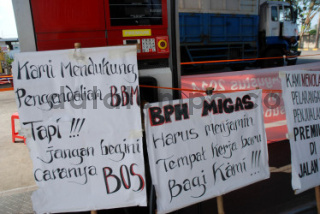 Kami Mendukung
Pengendalian BBM
Tapi !!!
Jangan begini
caranya BOS
BPH MIGAS
Harus menjamin
Tempat kerja baru
Bagi Kami !!!
Kami MENOLAK
PELARANGAN
PENJUALAN
PREMIUM
DI
JALAN